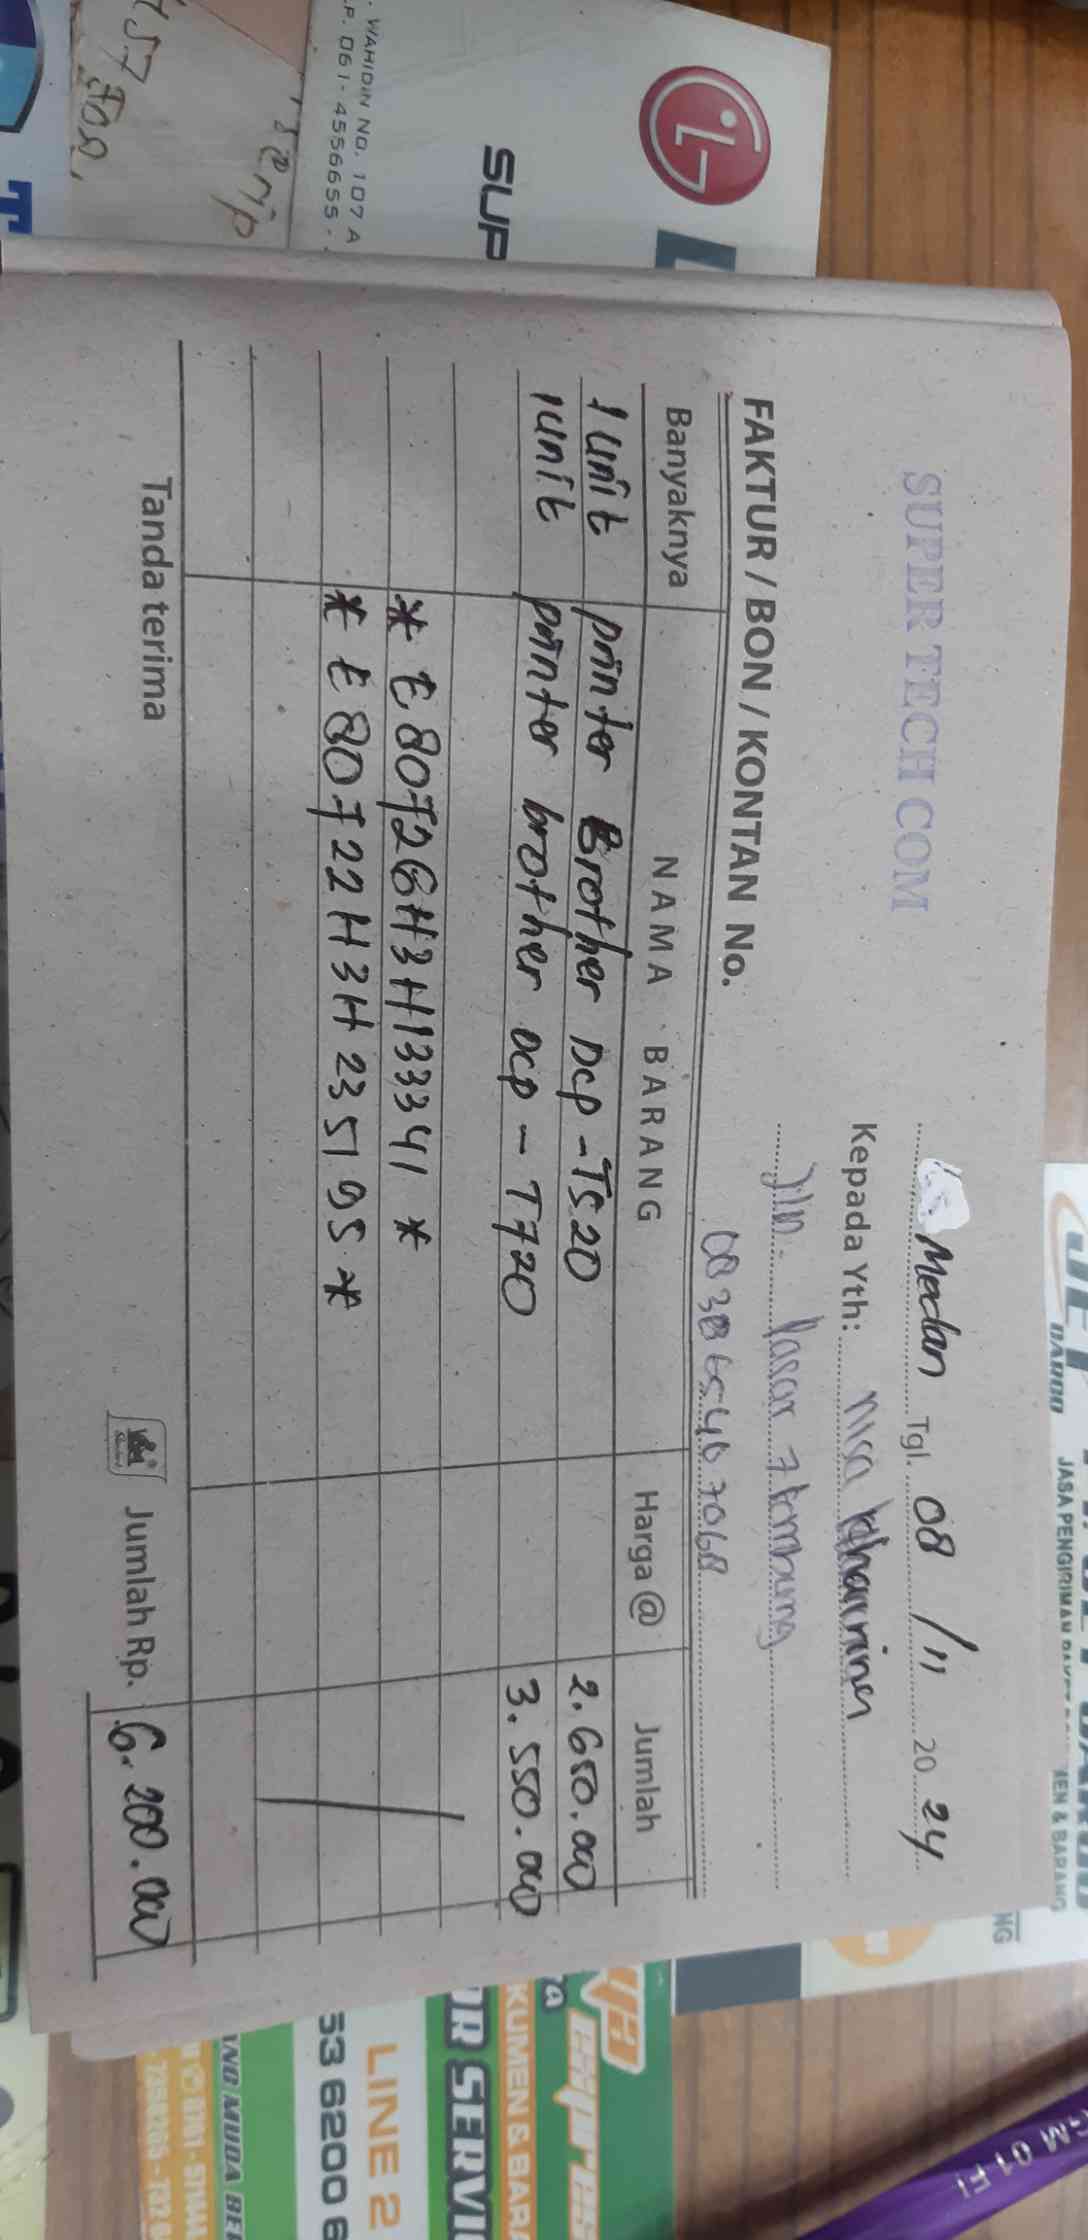 SUPER TECH COM
Medan Tgl. 08 / 11 20 24
Kepada Yth: nisa khairiner
Jln. Pasar 7 tembung
0838 6540 7068
FAKTUR / BON / KONTAN No.
Banyaknya NAMA BARANG Harga @ Jumlah
1 unit printer Brother DCP - T520 2.650.000
1 unit printer brother DCP - T720 3.550.000
* E80726H3H133341 *
* E80722H3H235195 *
Tanda terima Jumlah Rp. 6.200.000
LG
SUP
. WAHIDIN NO. 107 A
P. 061- 4556655 -
JASA PENGIRIMAN
MEN & BARANG
NG
KUMEN & BARA
OR SERVI
LINE 2
53 6200 6
T